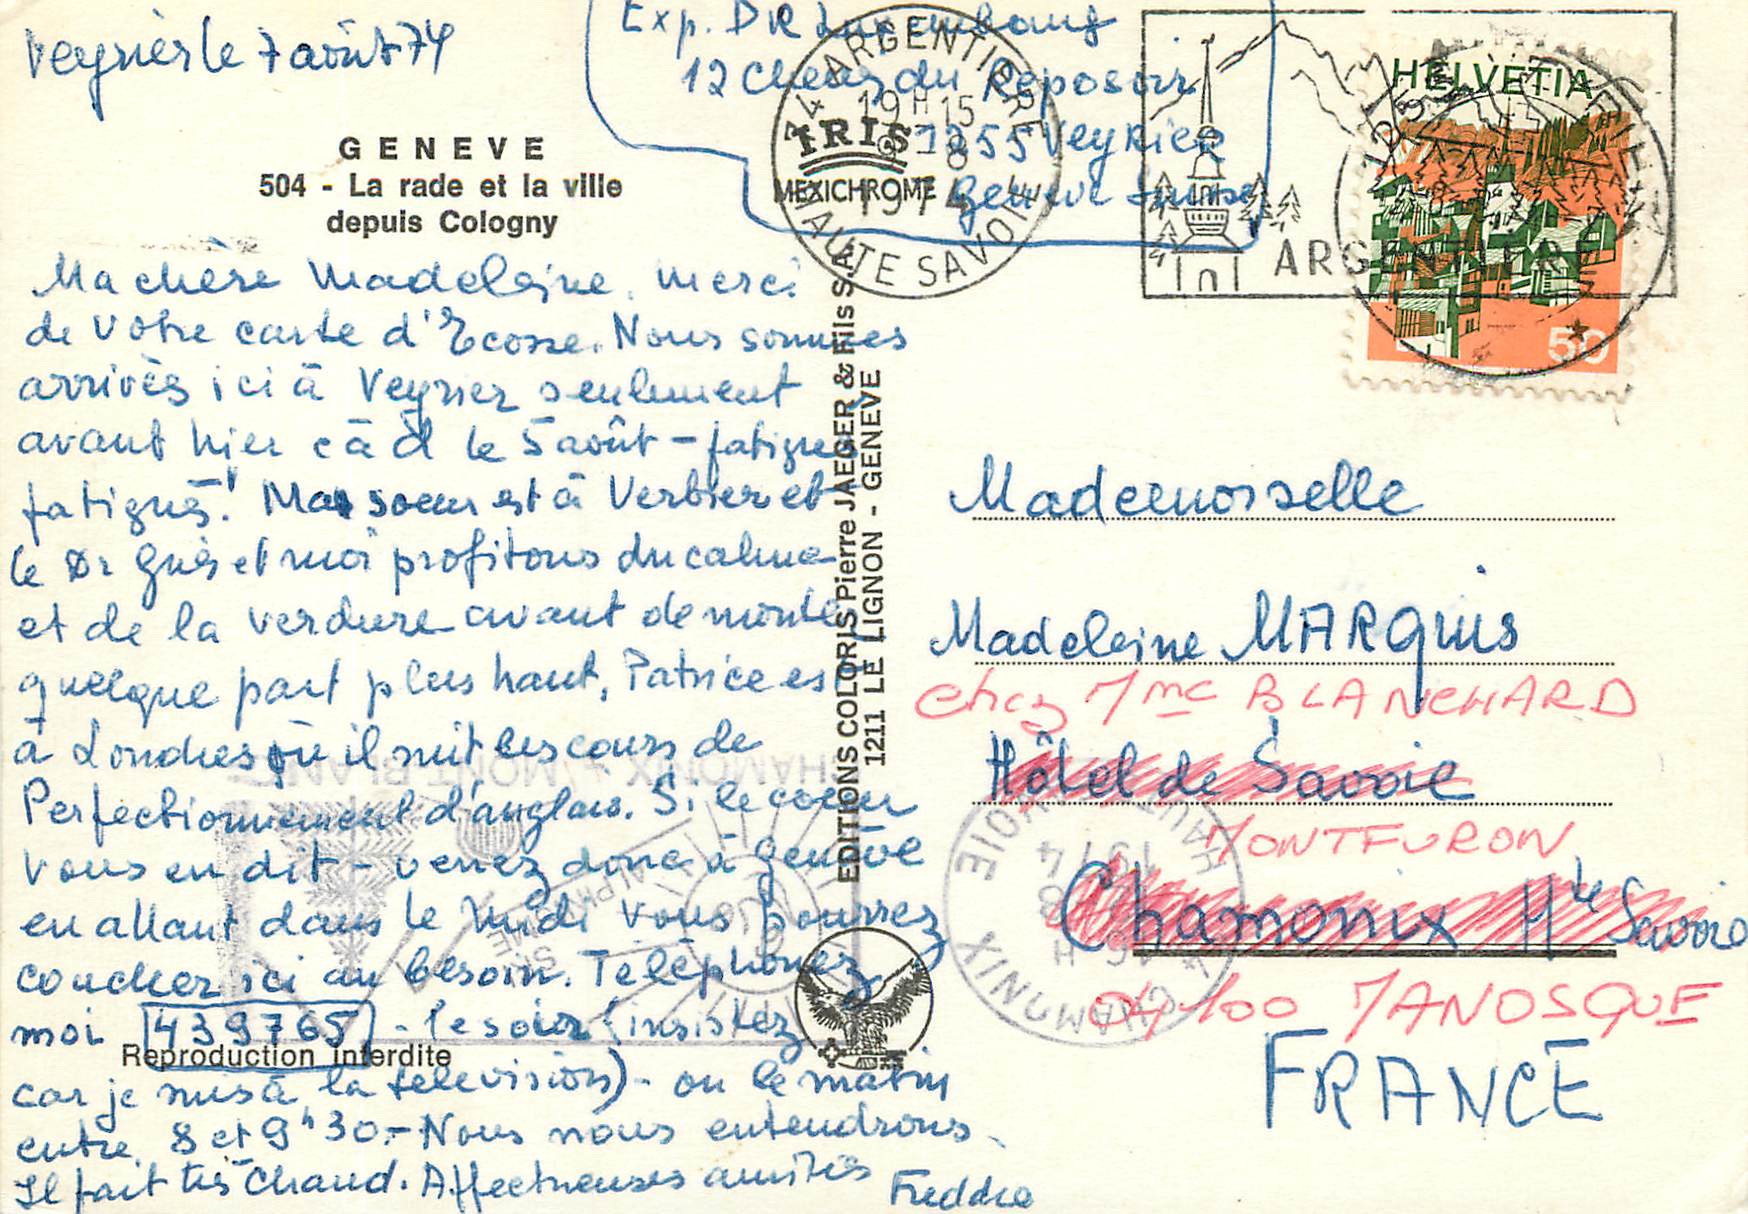 Veyrier le 7 août 74
Exp. DR Luxembourg
12 Chemin du Reposoir
1255 Veyrier
Genève Suisse
GENEVE
504 - La rade et la ville
depuis Cologny
IRIS
MEXICHROME
74 ARGENTIERE
19H15
8-8
1974
HAUTE SAVOIE
ARGENTIERE
HELVETIA
50
Ma chère Madeleine, merci
de votre carte d'Ecosse. Nous sommes
arrivés ici à Veyrier seulement
avant hier càd le 5 août - fatigués
fatigués! Ma soeur est à Verbier et
le Dr et moi profitons du calme
et de la verdure avant de monter
quelque part plus haut, Patrice est
à Londres où il suit les cours de
Perfectionnement d'anglais. Si le coeur
vous en dit - venez donc à Genève
en allant dans le Midi vous pourrez
coucher ici au besoin. Téléphonez
moi 439765 - le soir (insistez
car je suis à la télévision) - ou le matin
entre 8 et 9h30.- Nous nous entendrons.
Il fait très chaud. Affectueuses amitiés
Freddie
Reproduction interdite
EDITIONS COLORIS Pierre JAEGER & Fils S.A.
1211 LE LIGNON - GENEVE
Mademoiselle
Madeleine MARquis
chez Mme BLANCHARD
Hôtel de Savoie
MONTFURON
Chamonix Hte Savoie
04100 MANOSQUE
FRANCE
CHAMONIX - MONT-BLANC
SKI
ALPINISME
CHAMONIX
16 H
8
1974
HAUTE SAVOIE